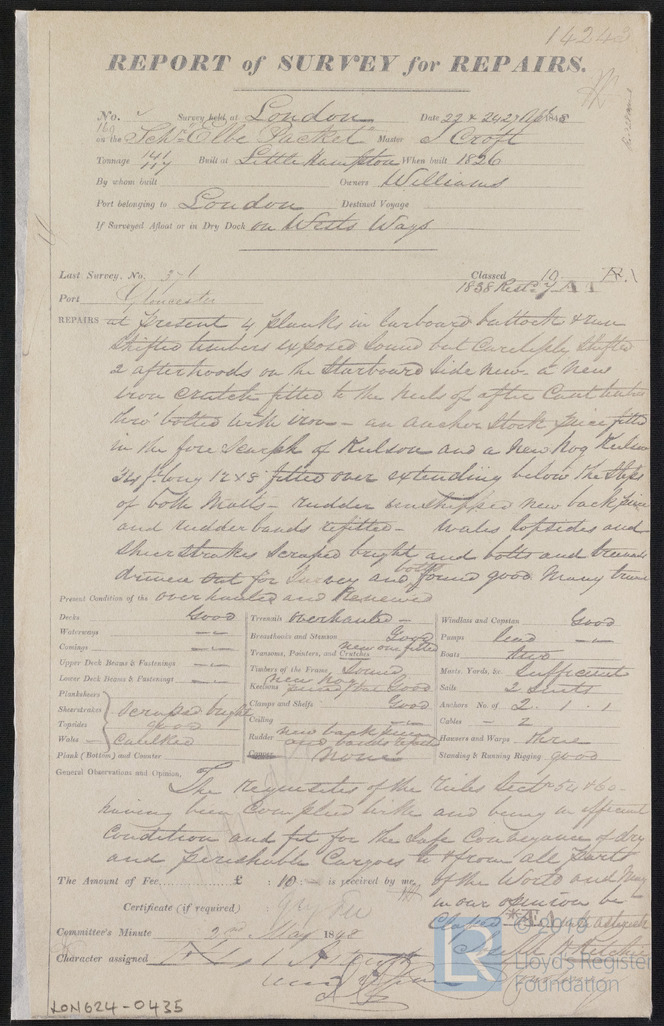 14243
REPORT of SURVEY for REPAIRS.
No. Survey held at London Date 22 & 24 27 Apl 1848
160
on the Schr "Elbe Packet" Master J Croft
Tonnage 141 117 Built at Little Hampton When built 1826
By whom built Owners Williams
Port belonging to London Destined Voyage
If Surveyed Afloat or in Dry Dock on Wests Ways
Last Survey, No. 371 Classed 10
1838 Restd 7
Port Gloucester
REPAIRS at present 4 planks in larboard buttock & run
shifted timbers exposed sound but carefully shifted
2 afterhoods on the Starboard side new a new
iron crutch fitted to the heels of after Cant timbers
thro' bolted with iron - an anchor Stock piece fitted
in the fore Scarph of Keelson and a new Hog Keelson
long 12 x 8 fitted over extending below the Steps
of both Masts - rudder unshipped new back piece
and rudder bands refitted - Wales topsides and
Sheerstrakes scraped bright and bolts and treenails
driven out for Survey and found good many
bolts
Present Condition of the overhauled and Renewed
Decks Good
Waterways
Comings
Upper Deck Beams & Fastenings
Lower Deck Beams & Fastenings
Planksheers
Sheerstrakes scraped bright
Topsides good
Wales caulked
Plank (Bottom) and Counter
Treenails overhauled
Breasthooks and Stemson Good
Transoms, Pointers, and Crutches new one fitted
Timbers of the Frame Sound
Keelsons new hog Good
Clamps and Shelfs Good
Ceiling
Rudder new back piece and bands refitted
Copper none
Windlass and Capstan Good
Pumps lead
Boats two
Masts, Yards, &c. Sufficient
Sails 2 suits
Anchors No. of 2 . 1 . 1
Cables 2
Hawsers and Warps three
Standing & Running Rigging good
General Observations and Opinion, The requisites of the Rules Sectn 54 & 60
having been complied with and being in efficient
Condition and fit for the Safe Conveyance of dry
and perishable Cargoes to & from all parts
of the World and may
The Amount of Fee £ : 10 : is received by me,
in our opinion be
Certificate (if required)
Classed
Committee's Minute 2nd May 1848
Character assigned
© 2019
LR
Lloyd's Register
Foundation
LON624-0435